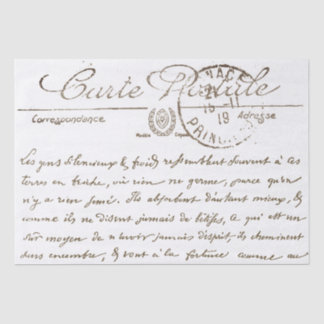 Carte Postale
Correspondance Adresse
15 -11
19
Les gens silencieux & froids ressemblent souvent à ces
terres en friche, où rien ne germe, parce qu'on
n'y a rien semé. Ils absorbent d'autant mieux, &
comme ils ne disent jamais de bêtises, ce qui est un
sûr moyen de n'avoir jamais d'esprit, ils cheminent
sans encombre, & vont à la fortune comme au